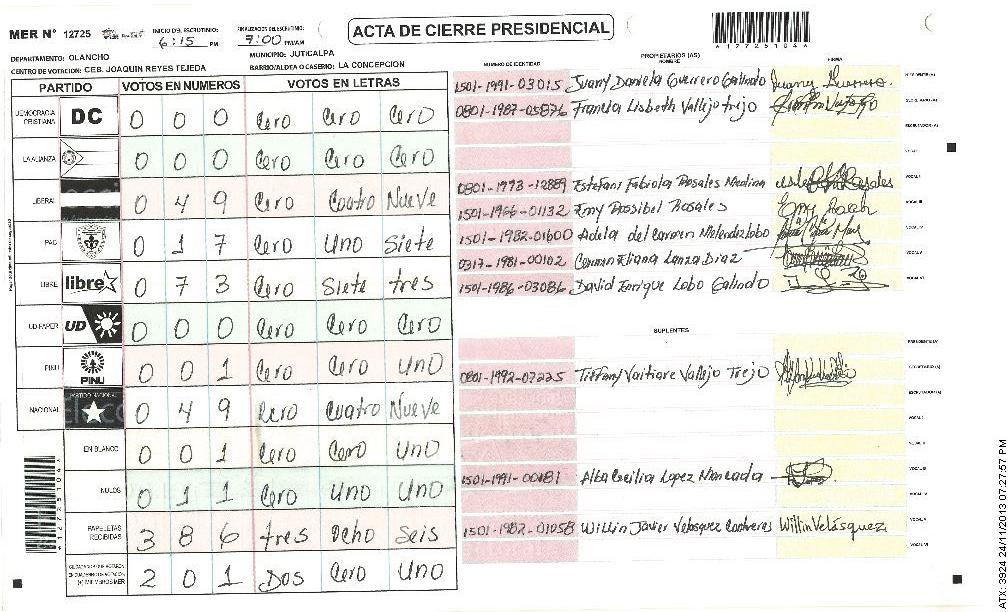 ACTA DE CIERRE PRESIDENCIAL
MER N° 12725
INICIO DEL ESCRUTINIO: 6:15 PM
FINALIZACION DEL ESCRUTINIO: 7:00 PM/AM
DEPARTAMENTO: OLANCHO
MUNICIPIO: JUTICALPA
CENTRO DE VOTACION: CEB. JOAQUIN REYES TEJEDA
BARRIO/ALDEA O CASERIO: LA CONCEPCION
PARTIDO VOTOS EN NUMEROS VOTOS EN LETRAS
DEMOCRACIA CRISTIANA DC 0 0 0 Cero Cero Cero
LA ALIANZA 0 0 0 Cero Cero Cero
LIBERAL 0 4 9 Cero Cuatro Nueve
PAC 0 1 7 Cero Uno Siete
LIBRE libre 0 7 3 Cero Siete tres
UD-FAPER UD 0 0 0 Cero Cero Cero
PINU PINU 0 0 1 Cero Cero Uno
NACIONAL PARTIDO NACIONAL 0 4 9 Cero Cuatro Nueve
EN BLANCO 0 0 1 Cero Cero Uno
NULOS 0 1 1 Cero Uno Uno
PAPELETAS RECIBIDAS 3 8 6 tres Ocho Seis
CIUDADANOS QUE VOTARON EN CUADERNO DE VOTACION (+) MIEMBROS MER 2 0 1 Dos Cero Uno
PROPIETARIOS (AS)
NUMERO DE IDENTIDAD NOMBRE FIRMA
1501-1991-03015 Juany Daniela Guerrero Galindo
0801-1987-05876 Franela Lisbeth Vallejo trejo
0801-1973-12889 Estefani Fabiola Rosales Medina
1501-1966-01132 Emy Rossibel Rosales
1501-1982-01600 Adela del Carmen Melendez lobo
0317-1981-00102 Carmen Eliana Lanza Diaz
1501-1986-03086 David Enrique Lobo Galindo
SUPLENTES
0801-1992-07225 Tiffany Vaitiare Vallejo Trejo
1501-1991-00181 Alba Cecilia Lopez Moncada
1501-1982-01058 Willin Javier Velasquez Contreras Willin Velásquez
*1772510 4*
ATX: 3924 24/11/2013 07:27:57 PM